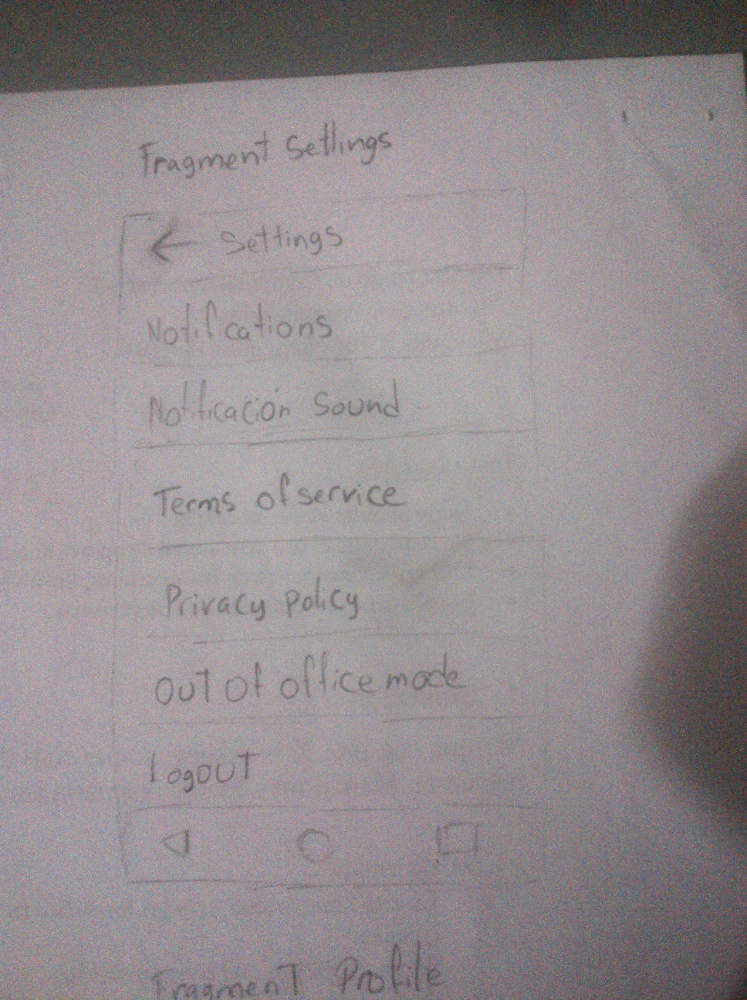 Fragment Settings
← Settings
Notifications
Notificación Sound
Terms of service
Privacy policy
Out of office mode
Logout
Fragment Profile